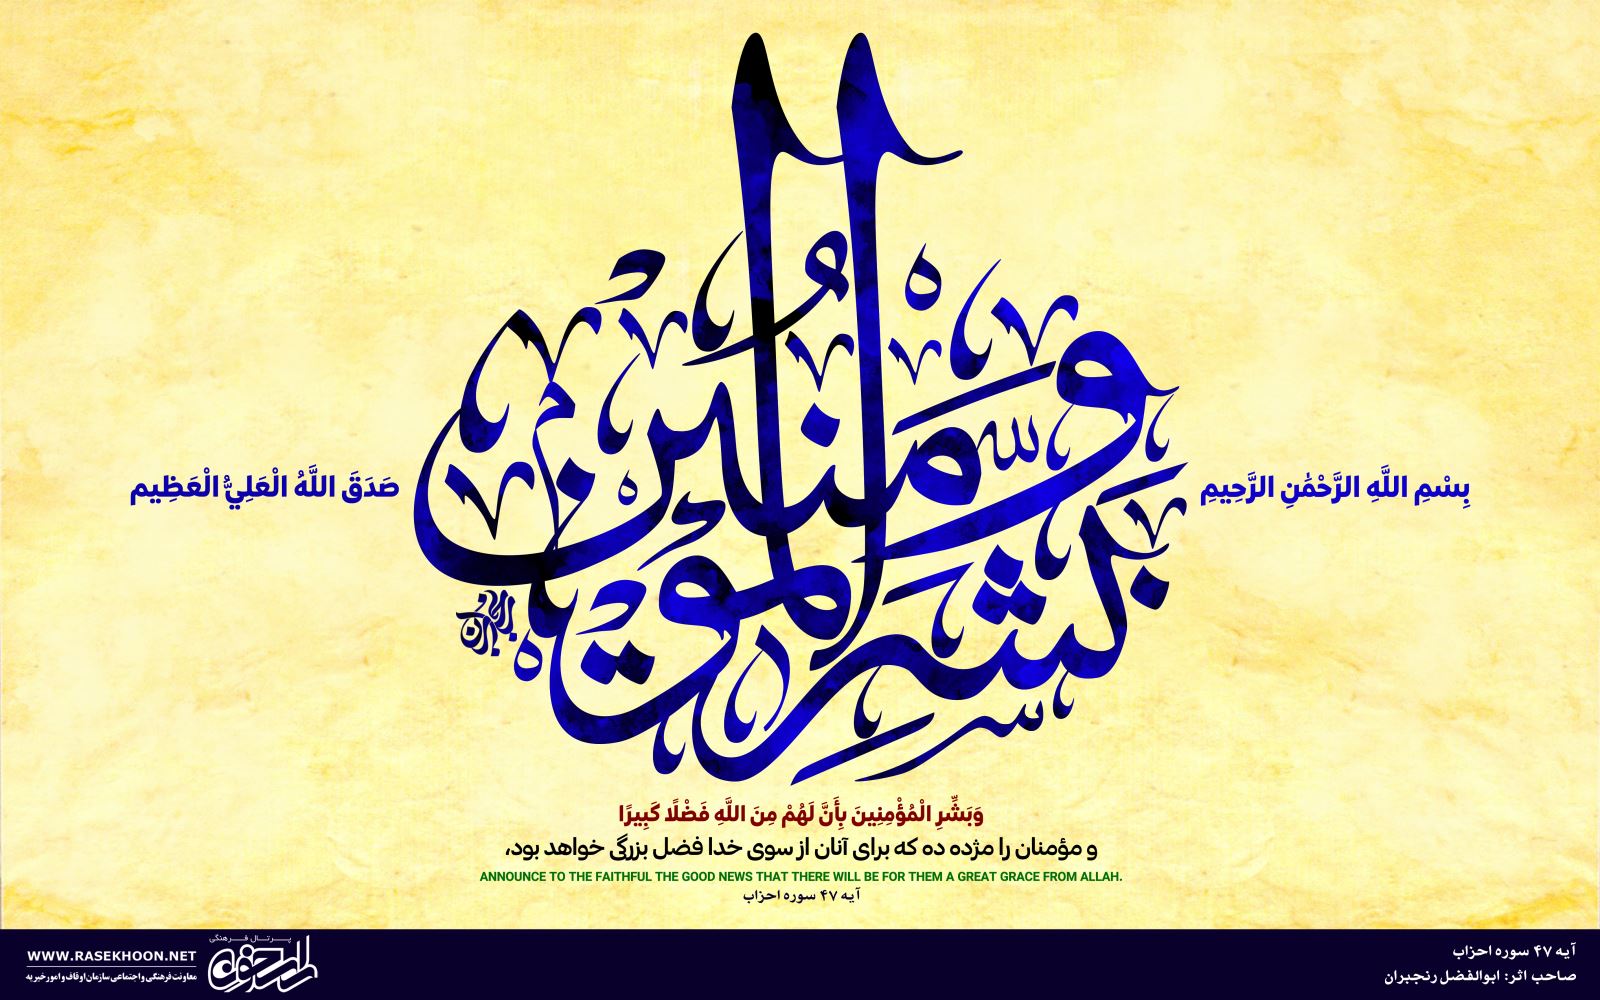 وبشر المؤمنین
بِسْمِ اللَّهِ الرَّحْمَٰنِ الرَّحِيمِ
صَدَقَ اللَّهُ الْعَلِيُّ الْعَظِيم
وَبَشِّرِ الْمُؤْمِنِينَ بِأَنَّ لَهُمْ مِنَ اللَّهِ فَضْلًا كَبِيرًا
و مؤمنان را مژده ده که برای آنان از سوی خدا فضل بزرگی خواهد بود،
ANNOUNCE TO THE FAITHFUL THE GOOD NEWS THAT THERE WILL BE FOR THEM A GREAT GRACE FROM ALLAH.
آیه ۴۷ سوره احزاب
آیه ۴۷ سوره احزاب
صاحب اثر: ابوالفضل رنجبران
پرتال فرهنگی
راسخون
WWW.RASEKHOON.NET
معاونت فرهنگی و اجتماعی سازمان اوقاف و امور خیریه